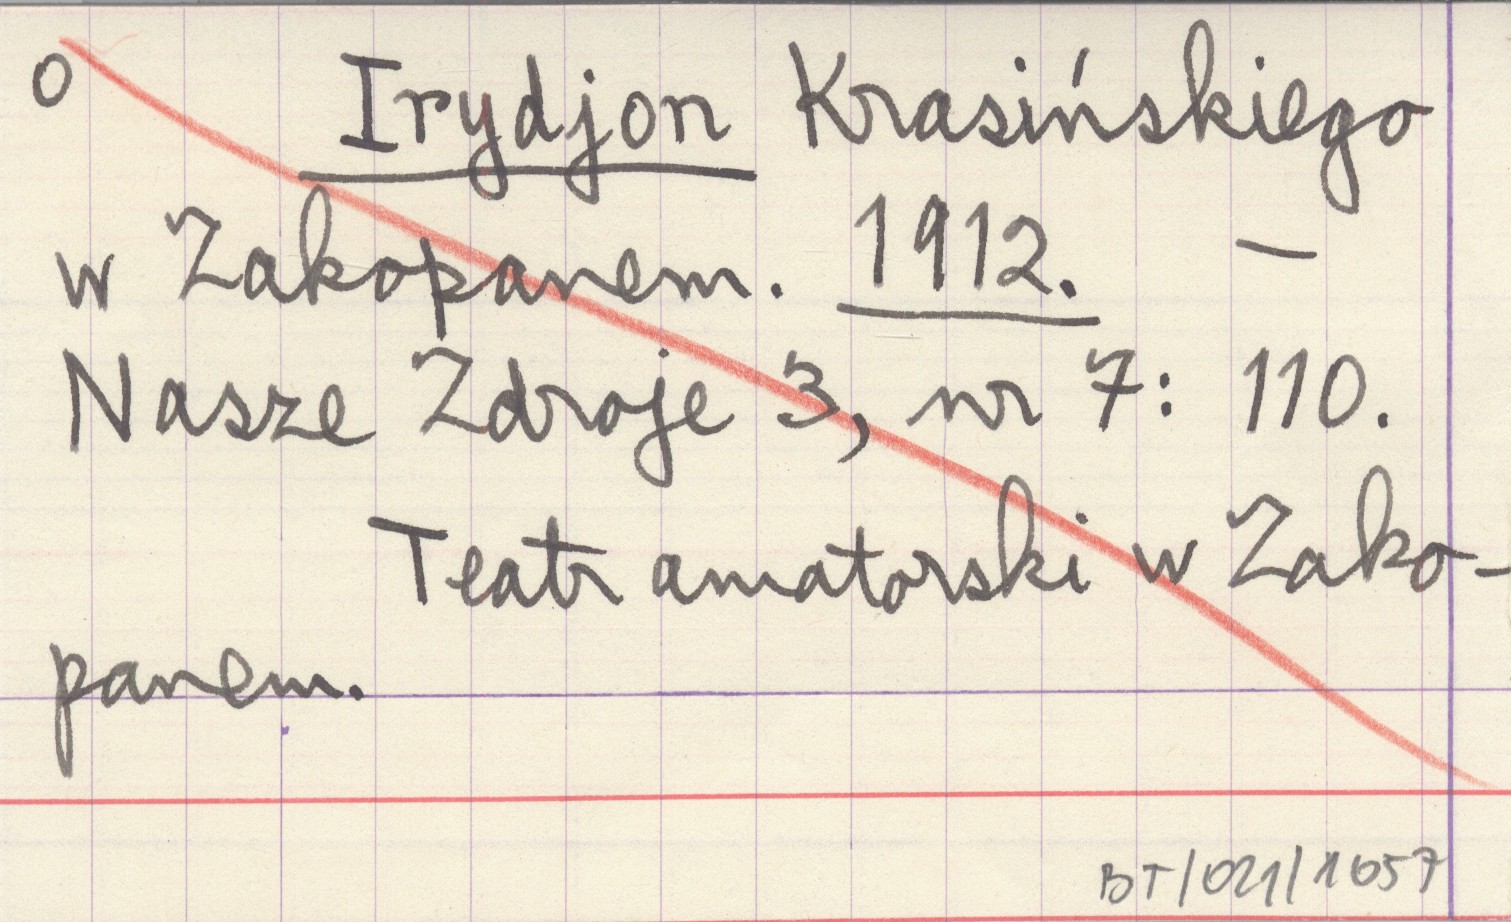 O Irydjon Krasińskiego
w Zakopanem. 1912. —
Nasze Zdroje 3, nr 7: 110.
Teatr amatorski w Zako-
panem.
BT/021/1657